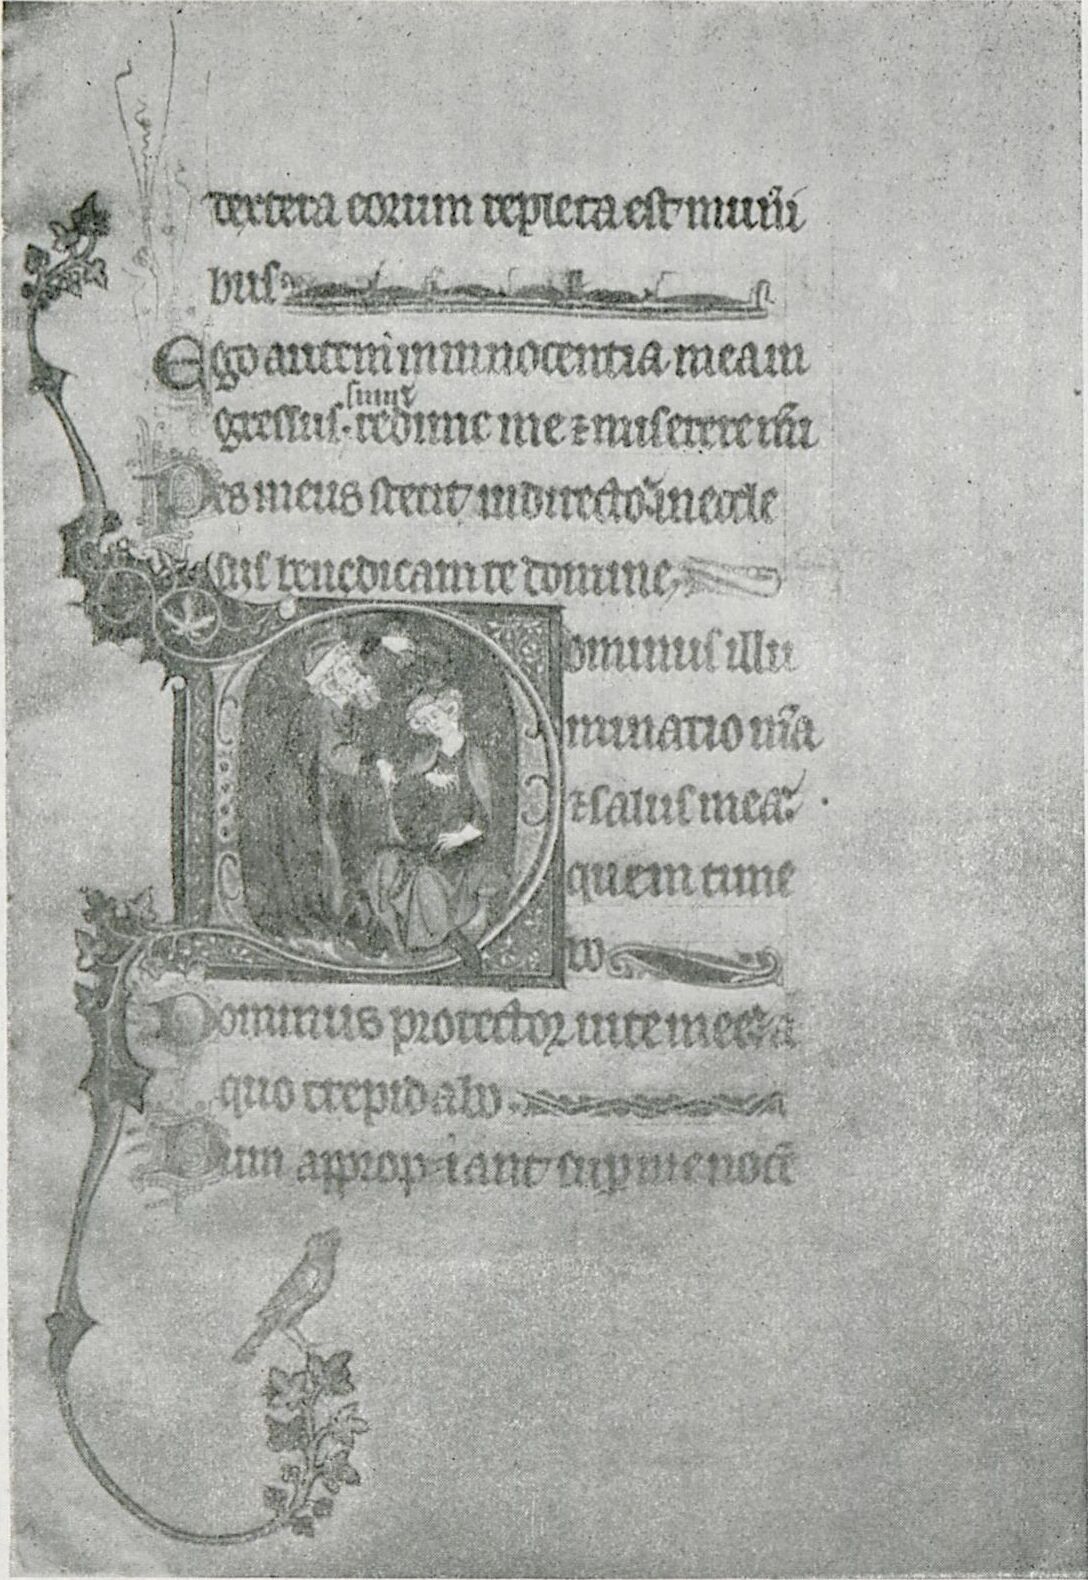 dextera eorum repleta est mun̄i
bus
Ego autem in innocentia mea in
gressus sum redime me ⁊ miserere m̄i
Pes meus stetit in directo in eccle
siis benedicam te domine
Dominus illu
minatio m̄a
⁊ salus mea
quem time
bo
Dominus protector uite mee a
quo trepidabo
Dum appropiant sup̄ me nocēt